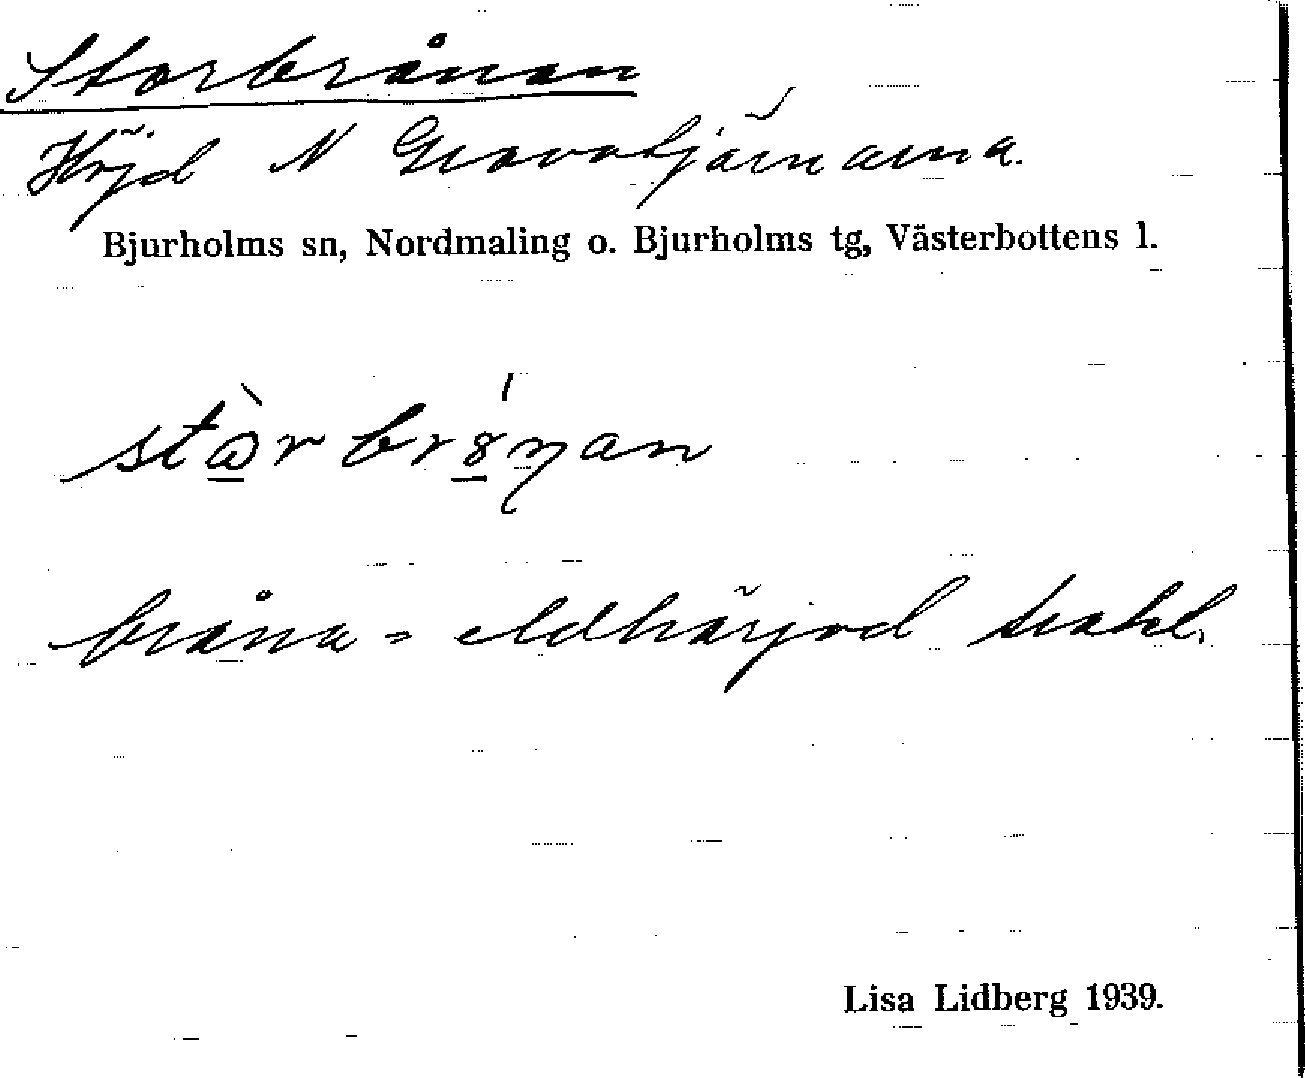 Storbrånan
Höjd N Gravatjärnarna.
Bjurholms sn, Nordmaling o. Bjurholms tg, Västerbottens l.
bråna = eldhärjad trakt.
Lisa Lidberg 1939.